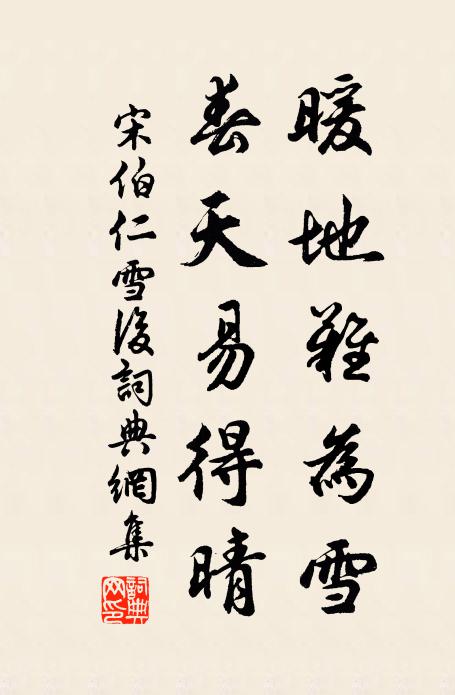 暖地難為雪
春天易得晴
宋伯仁雪後詞典網集
詞典網印